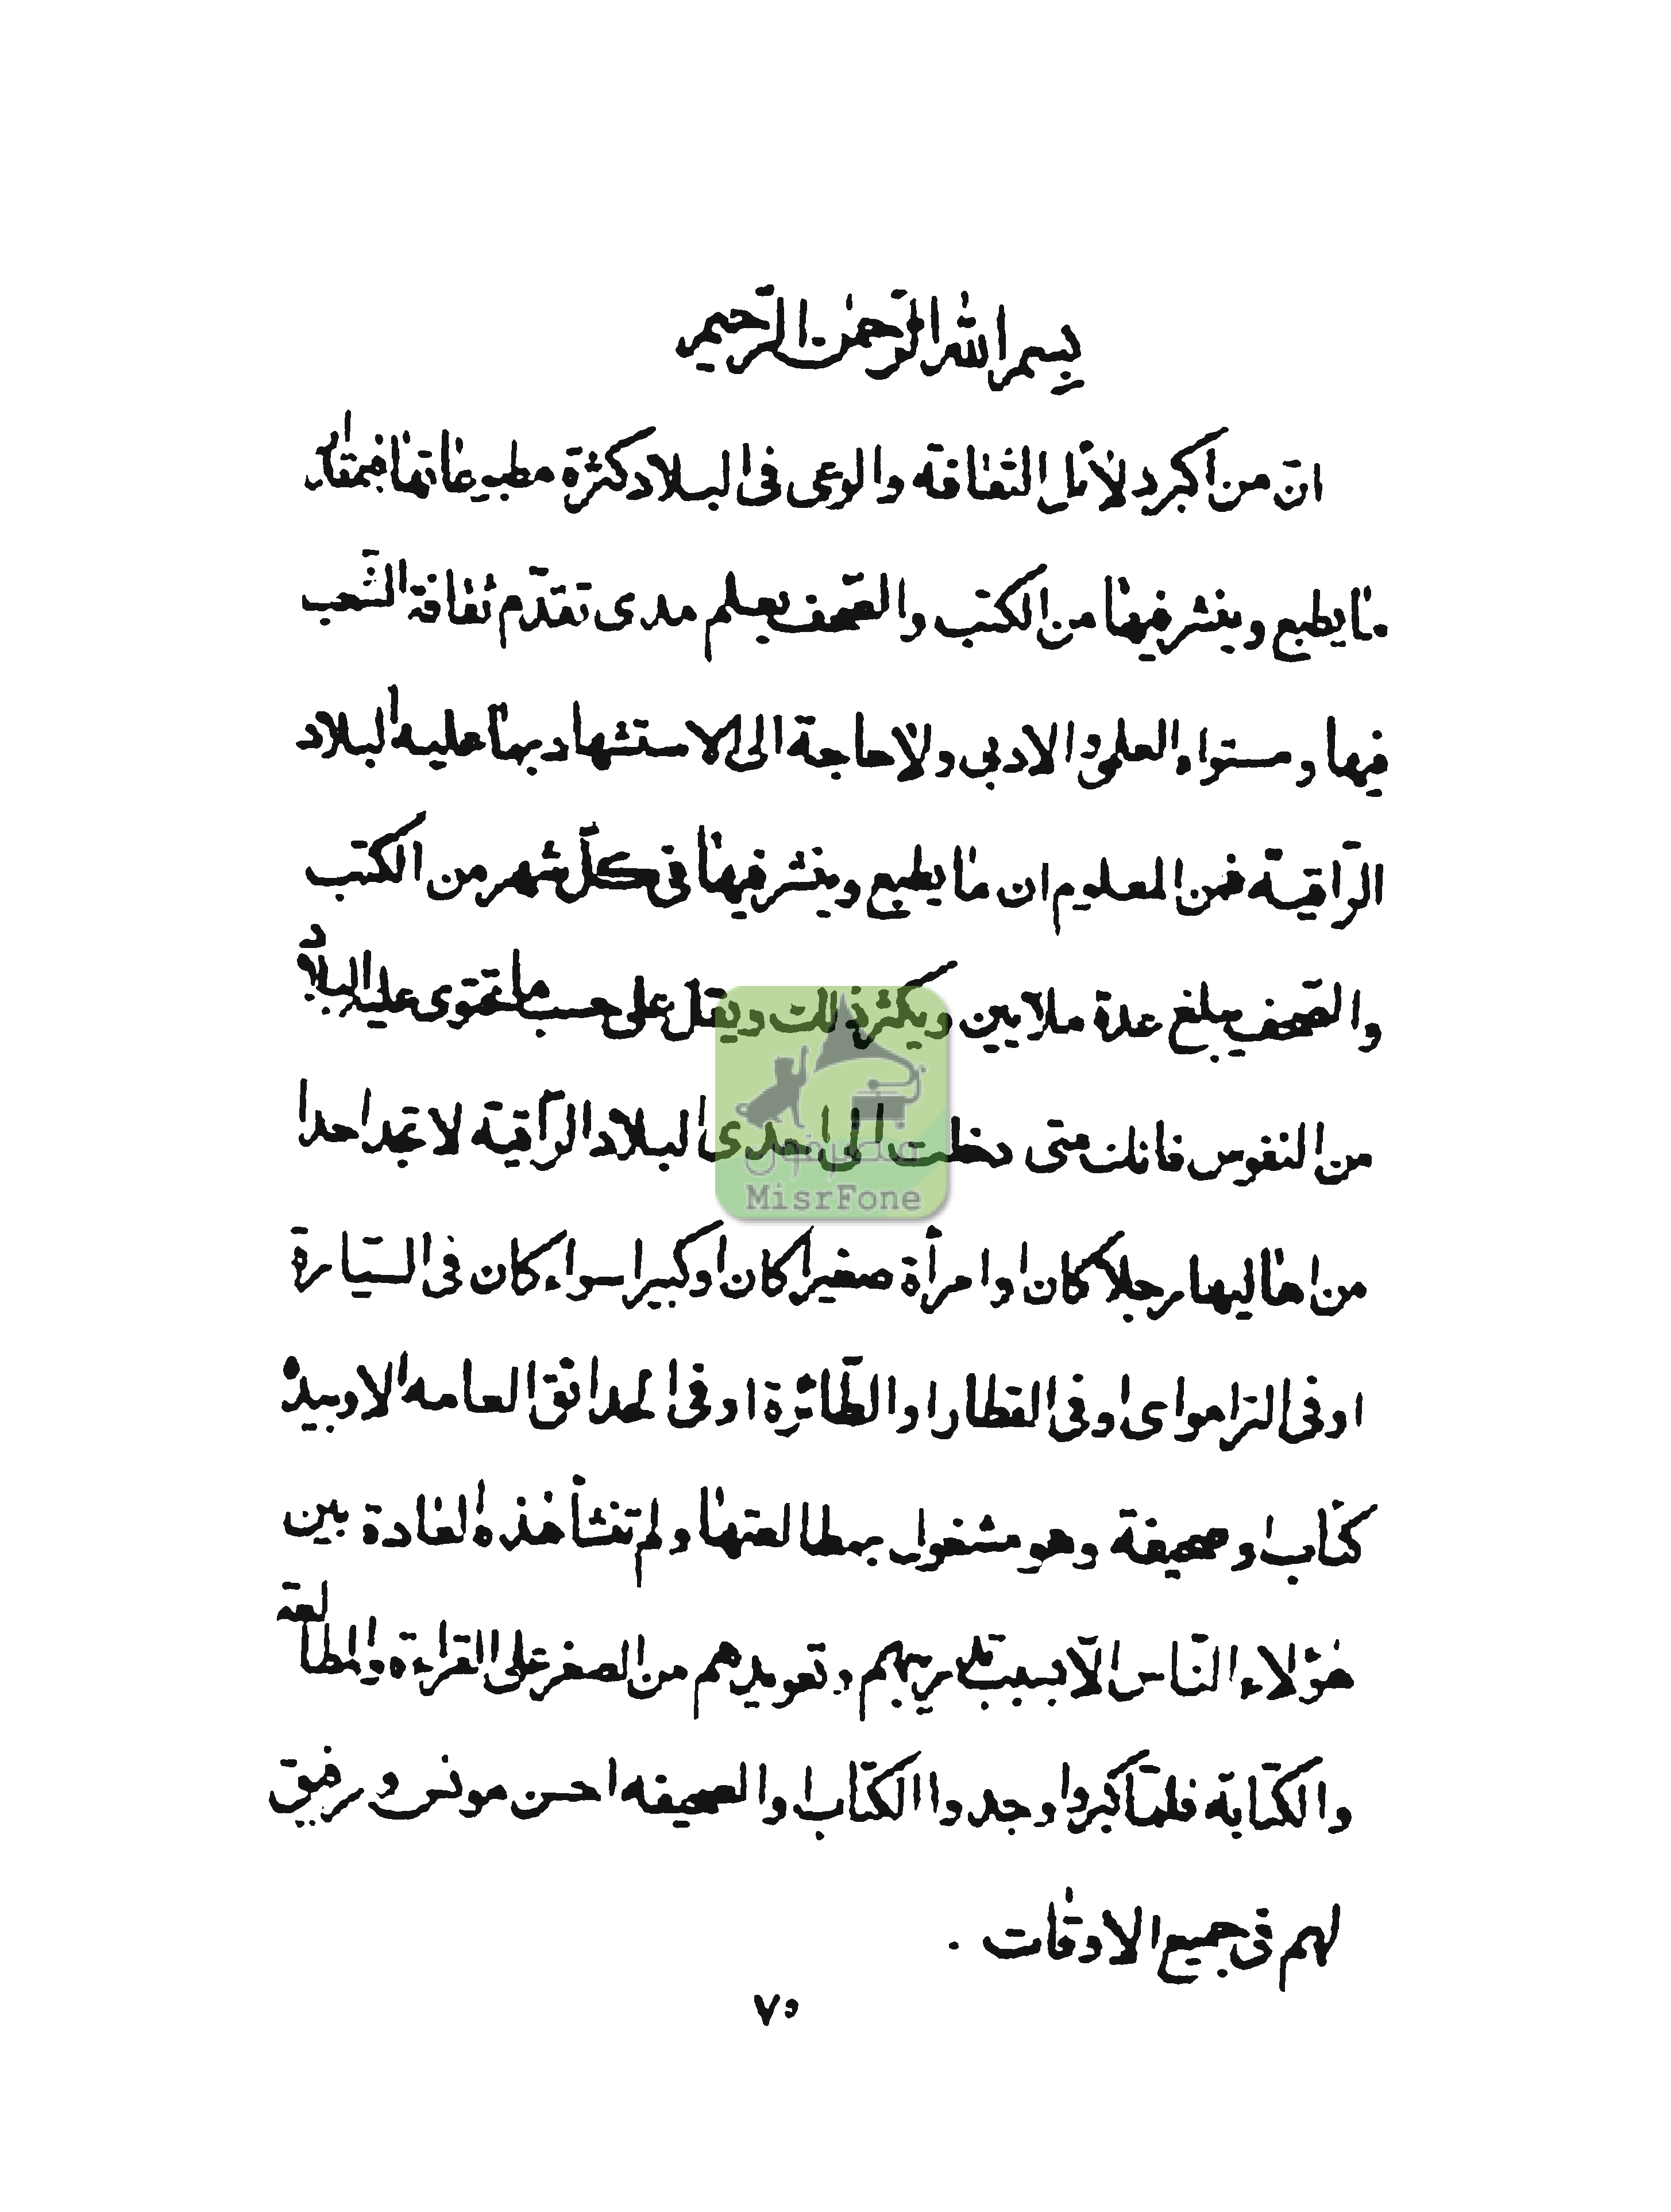 بسم الله الرّحمن الرّحيم
انّ من اكبر دلائل الثّقافة والوعى فى البلاد كثرة مطبوعاتها فبمقدار
ما يطبع وينشر فيها من الكتب والصّحف يعلم مدى تقدّم ثقافة الشّعب
فيها ومستواه العلمى والادبى ولا حاجة الى الاستشهاد بما عليه البلاد
الرّاقية فمن المعلوم ان ما يطبع وينشر فيها فى كلّ شهر من الكتب
والصّحف يبلغ عدة ملايين ويكثر ذلك ويقل على حسب ما تحتوى عليه البلاد
من النفوس فانك متى دخلت الى احدى البلاد الرّاقية لا تجد احدا
من اهاليها رجلا كان او امرأة صغيرا كان او كبيرا سواء كان فى السّيارة
او فى التراموای او فى القطار او الطّائرة او فى الحدائق العامه الا وبيده
كتاب او صحيفة وهو مشغول بمطالعتها ولم تنشأ هذه العادة بين
هؤلاء النّاس الّا بسبب تدريبهم وتعويدهم من الصغر على القراءة والمطالعة
والكتابة فلمّا كبروا وجدوا الكتاب والصحيفه احسن مونس ورفيق
لهم فى جميع الاوقات .
٧٥
مصرفون
MisrFone